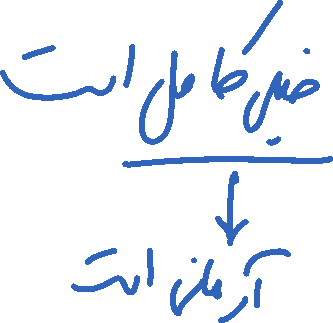 خیلی کامل است
آرمانی است